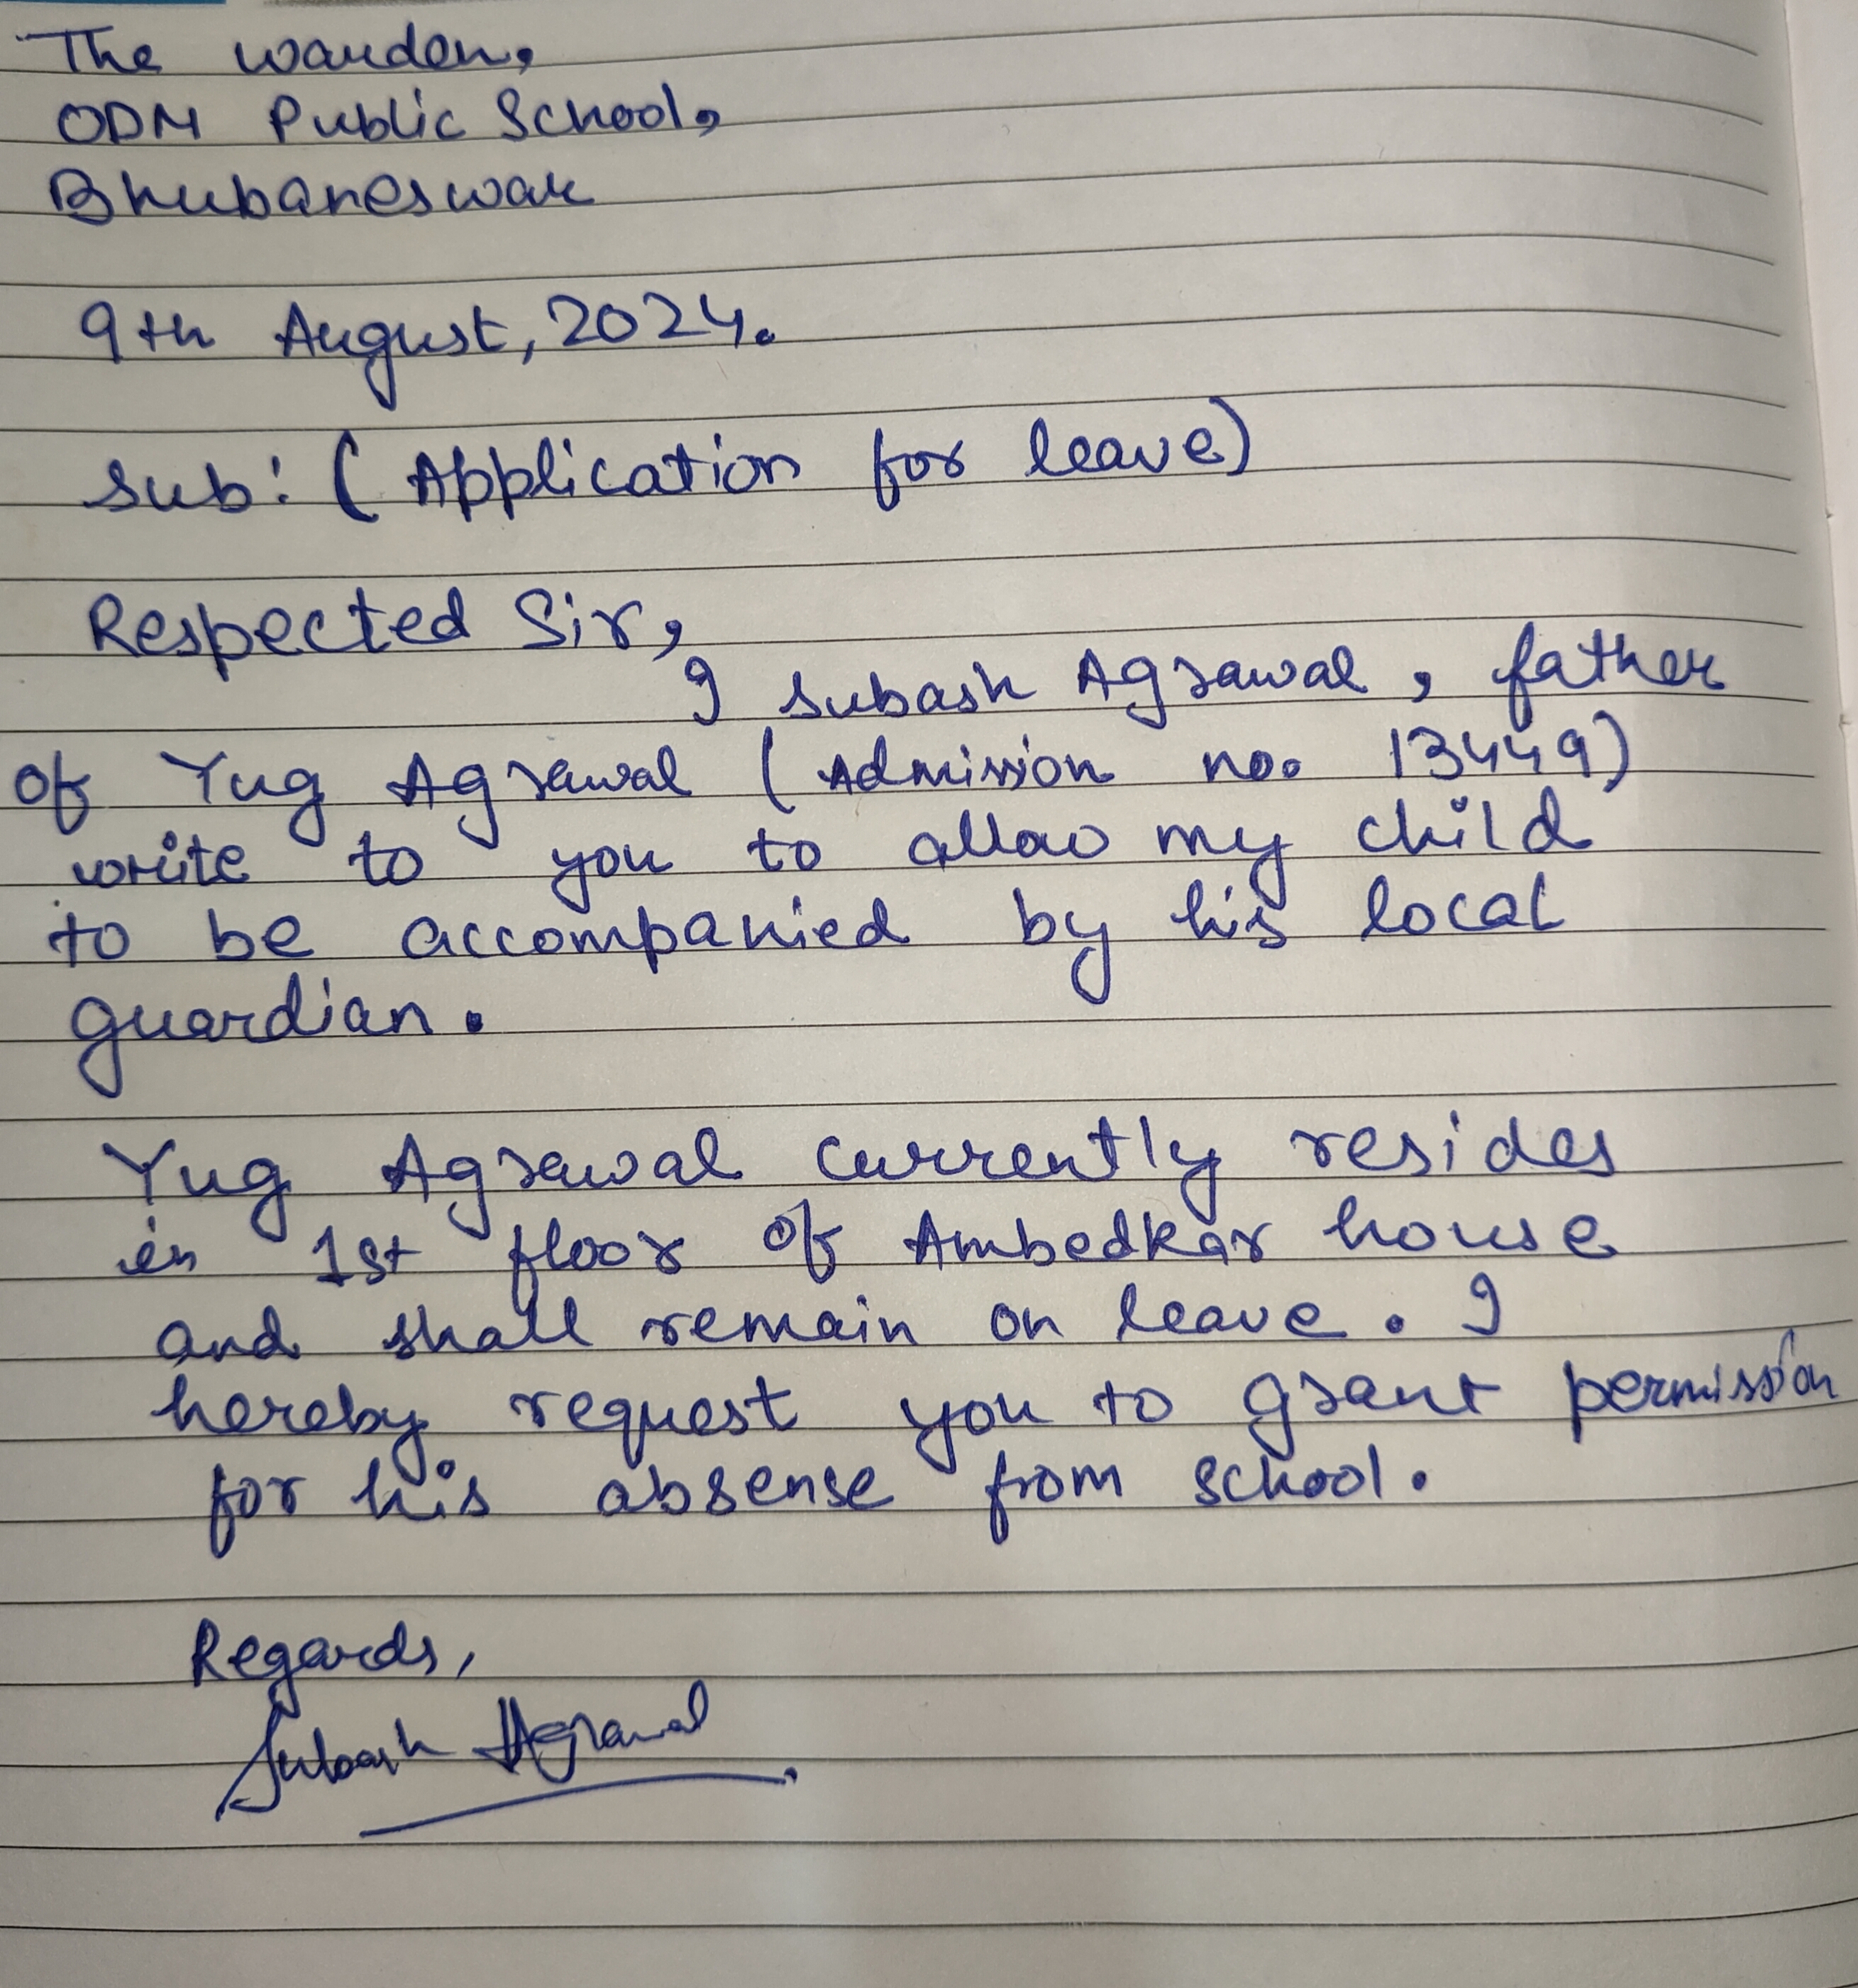 The warden,
ODM Public School,
Bhubaneswar
9th August, 2024.
Sub: (Application for leave)
Respected Sir,
I Subash Agrawal, father
of Yug Agrawal (Admission no. 13449)
write to you to allow my child
to be accompanied by his local
guardian.
Yug Agrawal currently resides
in 1st floor of Ambedkar house
and shall remain on leave. I
hereby request you to grant permission
for his absense from school.
Regards,
Subash Agrawal